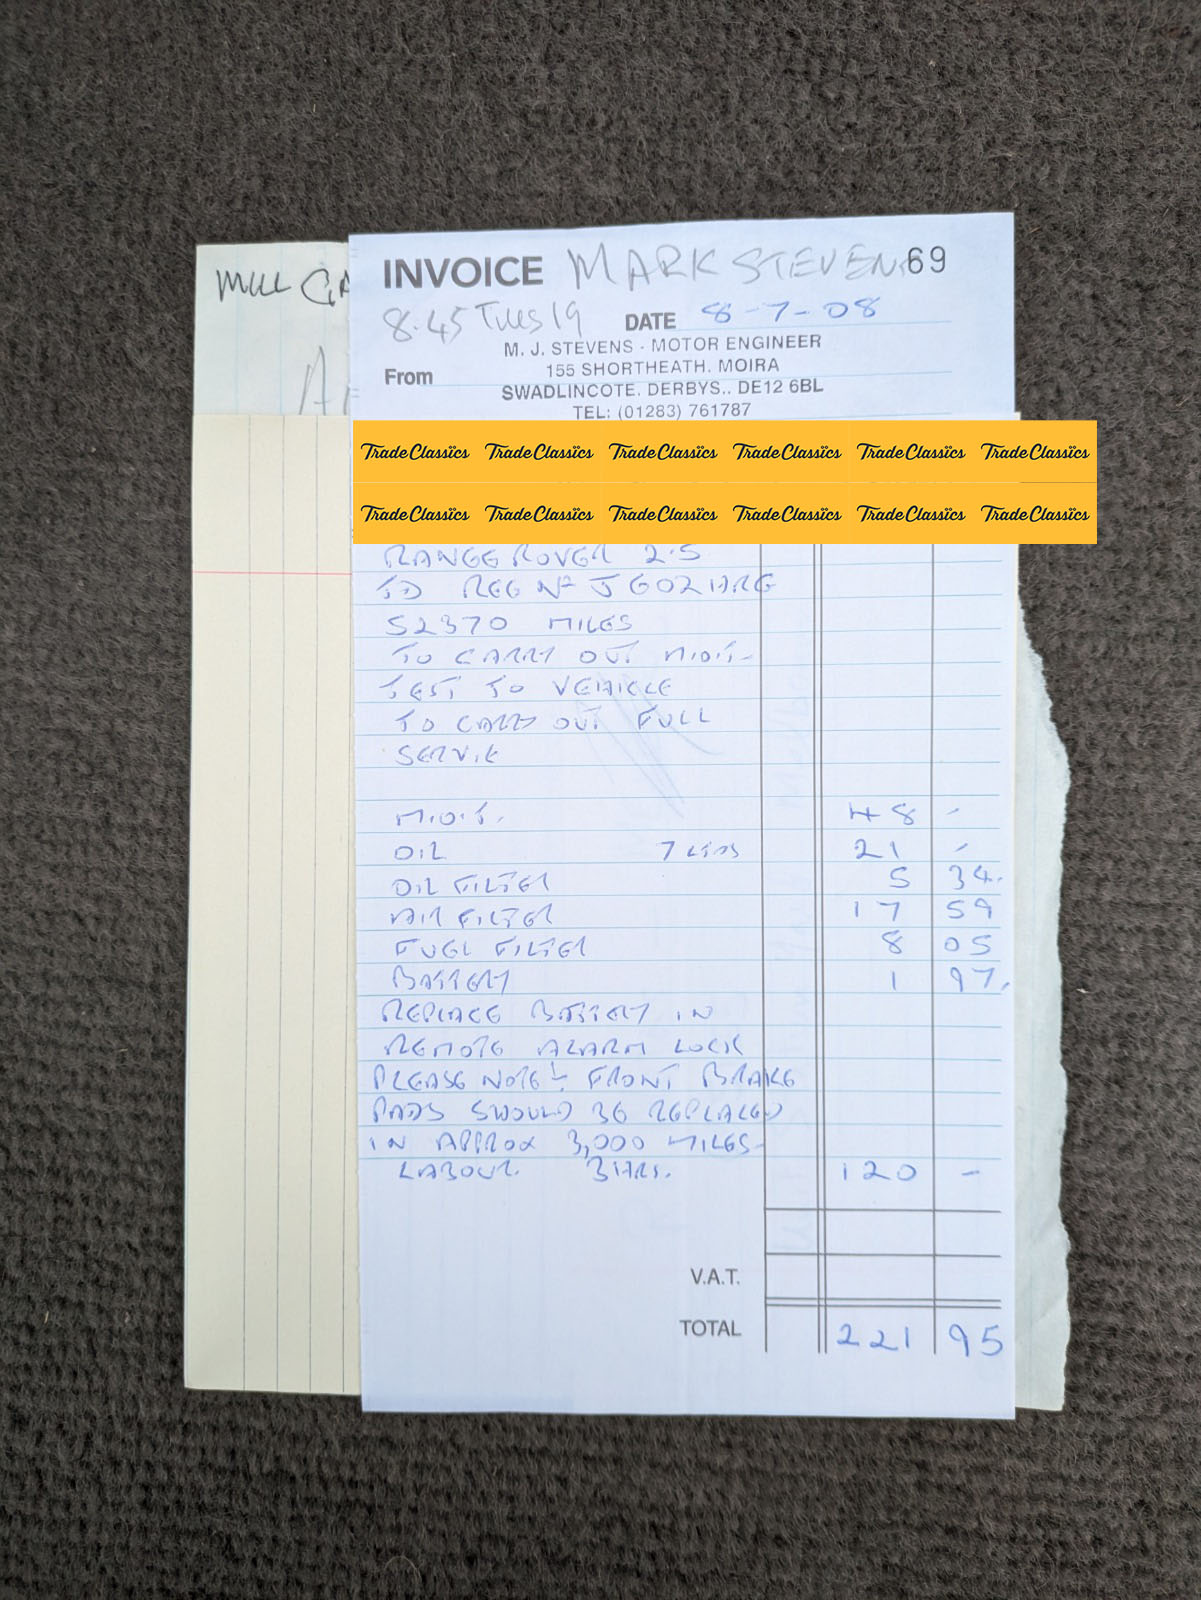 MILL GA
INVOICE MARK STEVENS 69
8.45 TUES 19 DATE 8-7-08
M. J. STEVENS - MOTOR ENGINEER
From 155 SHORTHEATH. MOIRA
SWADLINCOTE. DERBYS.. DE12 6BL
TEL: (01283) 761787
TradeClassics TradeClassics TradeClassics TradeClassics TradeClassics TradeClassics
TradeClassics TradeClassics TradeClassics TradeClassics TradeClassics TradeClassics
RANGE ROVER 2.5
TD REG Nº J602HRG
52370 MILES
TO CARRY OUT M.O.T.
TEST TO VEHICLE
TO CARRY OUT FULL
SERVICE
M.O.T. 48 -
OIL 7 LITRS 21 -
OIL FILTER 5 34.
AIR FILTER 17 59
FUEL FILTER 8 05
BATTERY 1 97.
REPLACE BATTERY IN
REMOTE ALARM LOCK
PLEASE NOTE :- FRONT BRAKE
PADS SHOULD BE REPLACED
IN APPROX 3,000 MILES-
LABOUR. 3 HRS. 120 -
V.A.T.
TOTAL 221 95